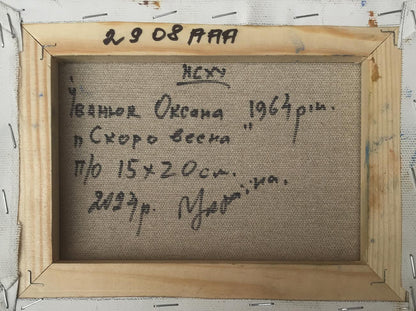 2908 ААА
НСХУ
Іванюк Оксана 1964р.н.
"Скоро весна"
п/о 15х20см.
2024р. Україна.